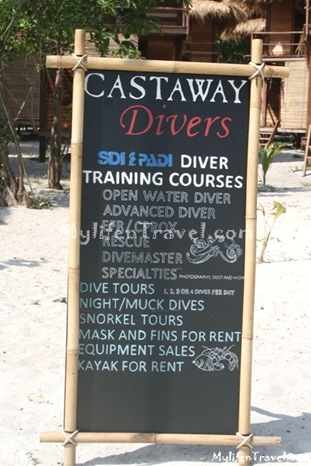 CASTAWAY
Divers
SDI & PADI DIVER
TRAINING COURSES
OPEN WATER DIVER
ADVANCED DIVER
EFR/CTROX
MylifenTravel.com
RESCUE
DIVEMASTER
SPECIALTIES PHOTOGRAPHY, DEEP AND MORE
DIVE TOURS 1, 2, 3 OR 4 DIVES PER DAY
NIGHT/MUCK DIVES
SNORKEL TOURS
MASK AND FINS FOR RENT
EQUIPMENT SALES
KAYAK FOR RENT
MylifenTravel.com